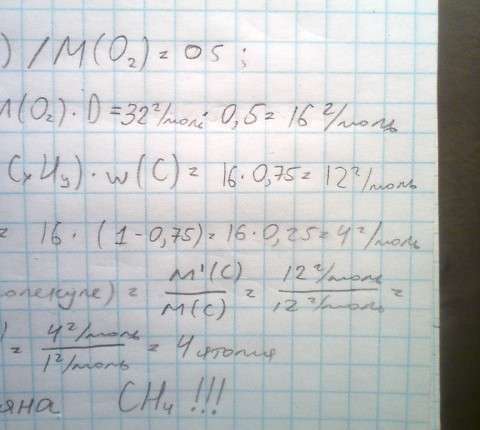 ) / M(O₂) = 0 5 ;
M(O₂) · D = 32 г/моль · 0,5 = 16 г/моль
CxHy) · w(C) = 16 · 0,75 = 12 г/моль
= 16 · (1 - 0,75) = 16 · 0,25 = 4 г/моль
молекуле) = M'(C) / M(C) = 12 г/моль / 12 г/моль =
= 4 г/моль / 1 г/моль = 4 атома
CH₄ !!!